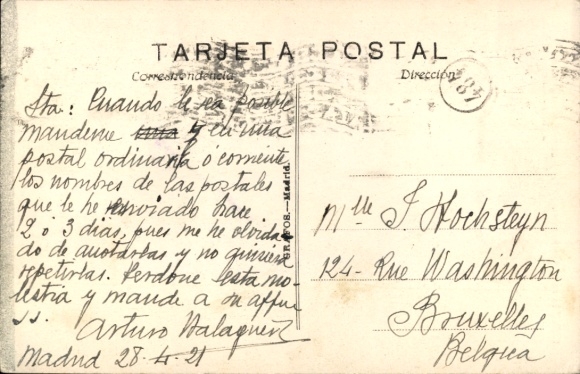 TARJETA POSTAL
Correspondencia
Dirección
Sta: Cuando le sea posible
mandeme en una
postal ordinaria ó corriente
los nombres de las postales
que le he enviado hace
2 ó 3 dias, pues me he olvida
do de anotarlas y no quisiera
repetirlas. Perdone esta mo-
lestia y mande a su affmo
s.s.
Arturo Balaguer
Madrid 28-4-21
GRAFOS.—Madrid.
Mlle J. Hochsteyn
124- Rue Washington
Bruxelles
Belgica